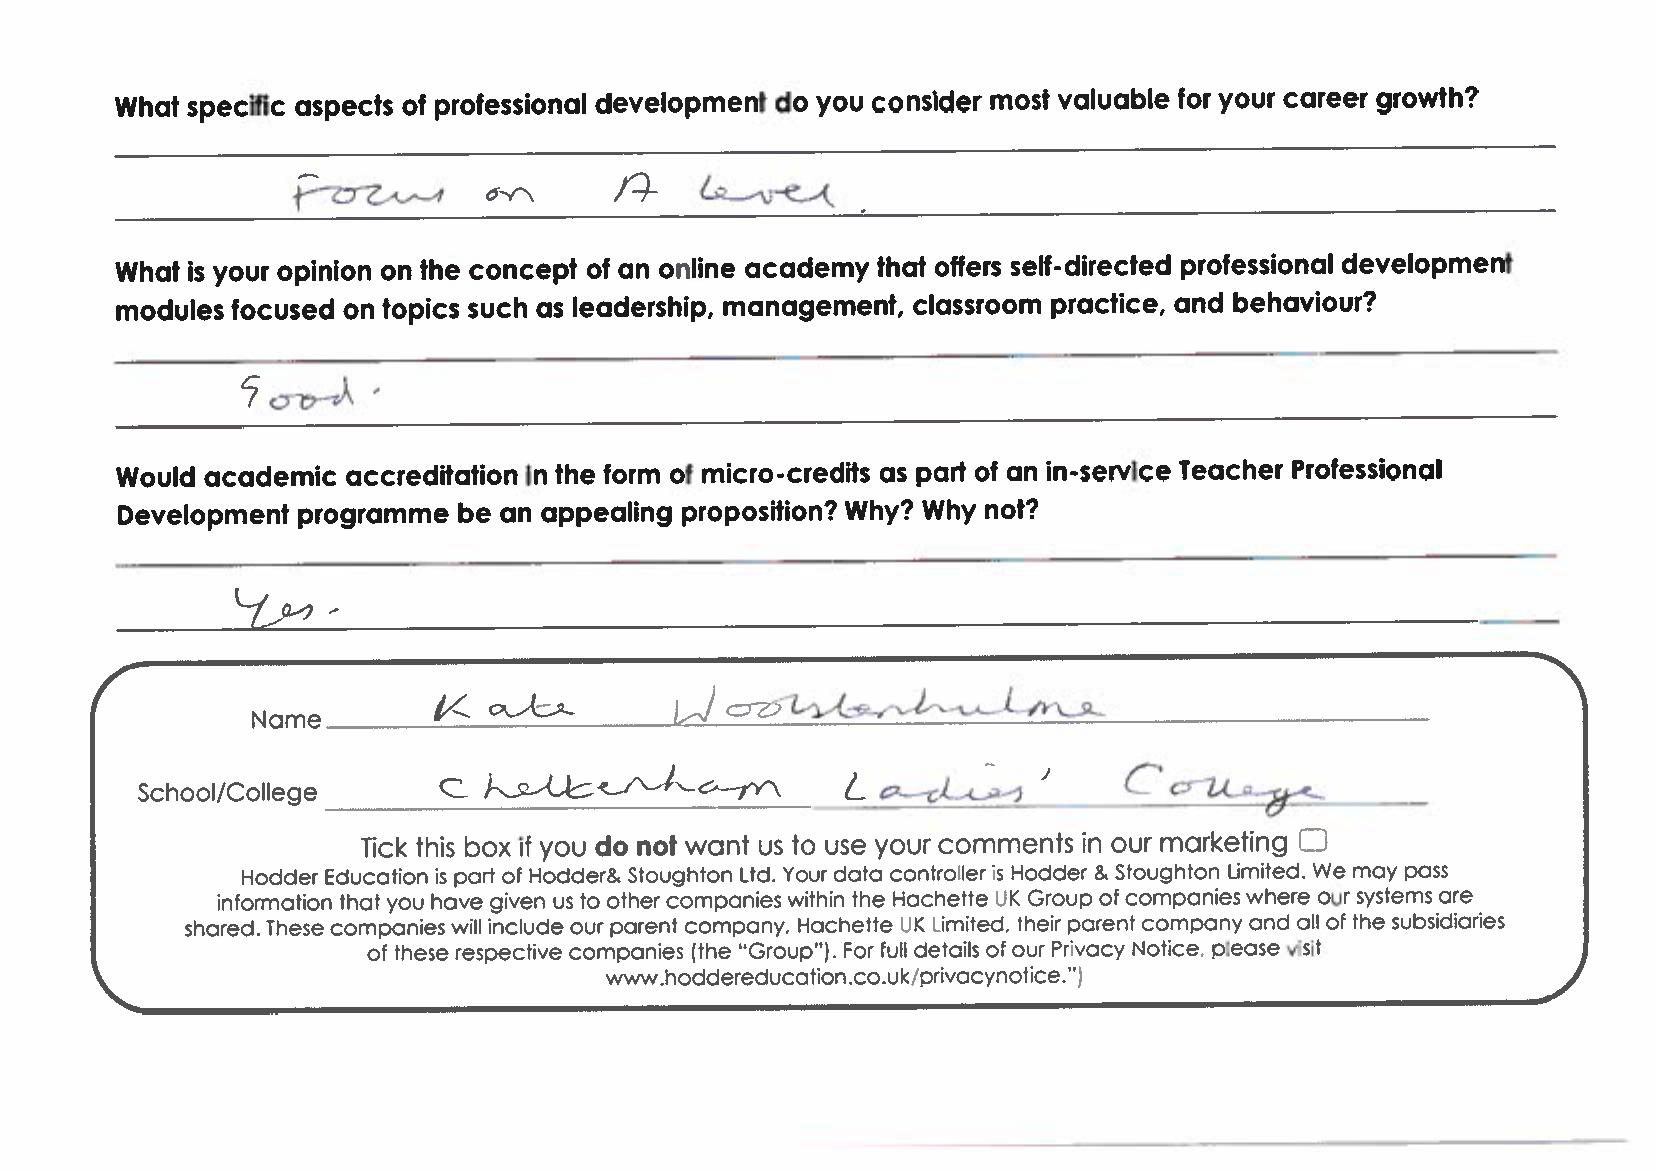 What specific aspects of professional development do you consider most valuable for your career growth?
Focus on A Level.
What is your opinion on the concept of an online academy that offers self-directed professional development
modules focused on topics such as leadership, management, classroom practice, and behaviour?
Good.
Would academic accreditation in the form of micro-credits as part of an in-service Teacher Professional
Development programme be an appealing proposition? Why? Why not?
Yes.
Name Kate Woolstenhulme
School/College Cheltenham Ladies' College
Tick this box if you do not want us to use your comments in our marketing
Hodder Education is part of Hodder& Stoughton Ltd. Your data controller is Hodder & Stoughton Limited. We may pass
information that you have given us to other companies within the Hachette UK Group of companies where our systems are
shared. These companies will include our parent company, Hachette UK Limited, their parent company and all of the subsidiaries
of these respective companies (the “Group”). For full details of our Privacy Notice, please visit
www.hoddereducation.co.uk/privacynotice.")